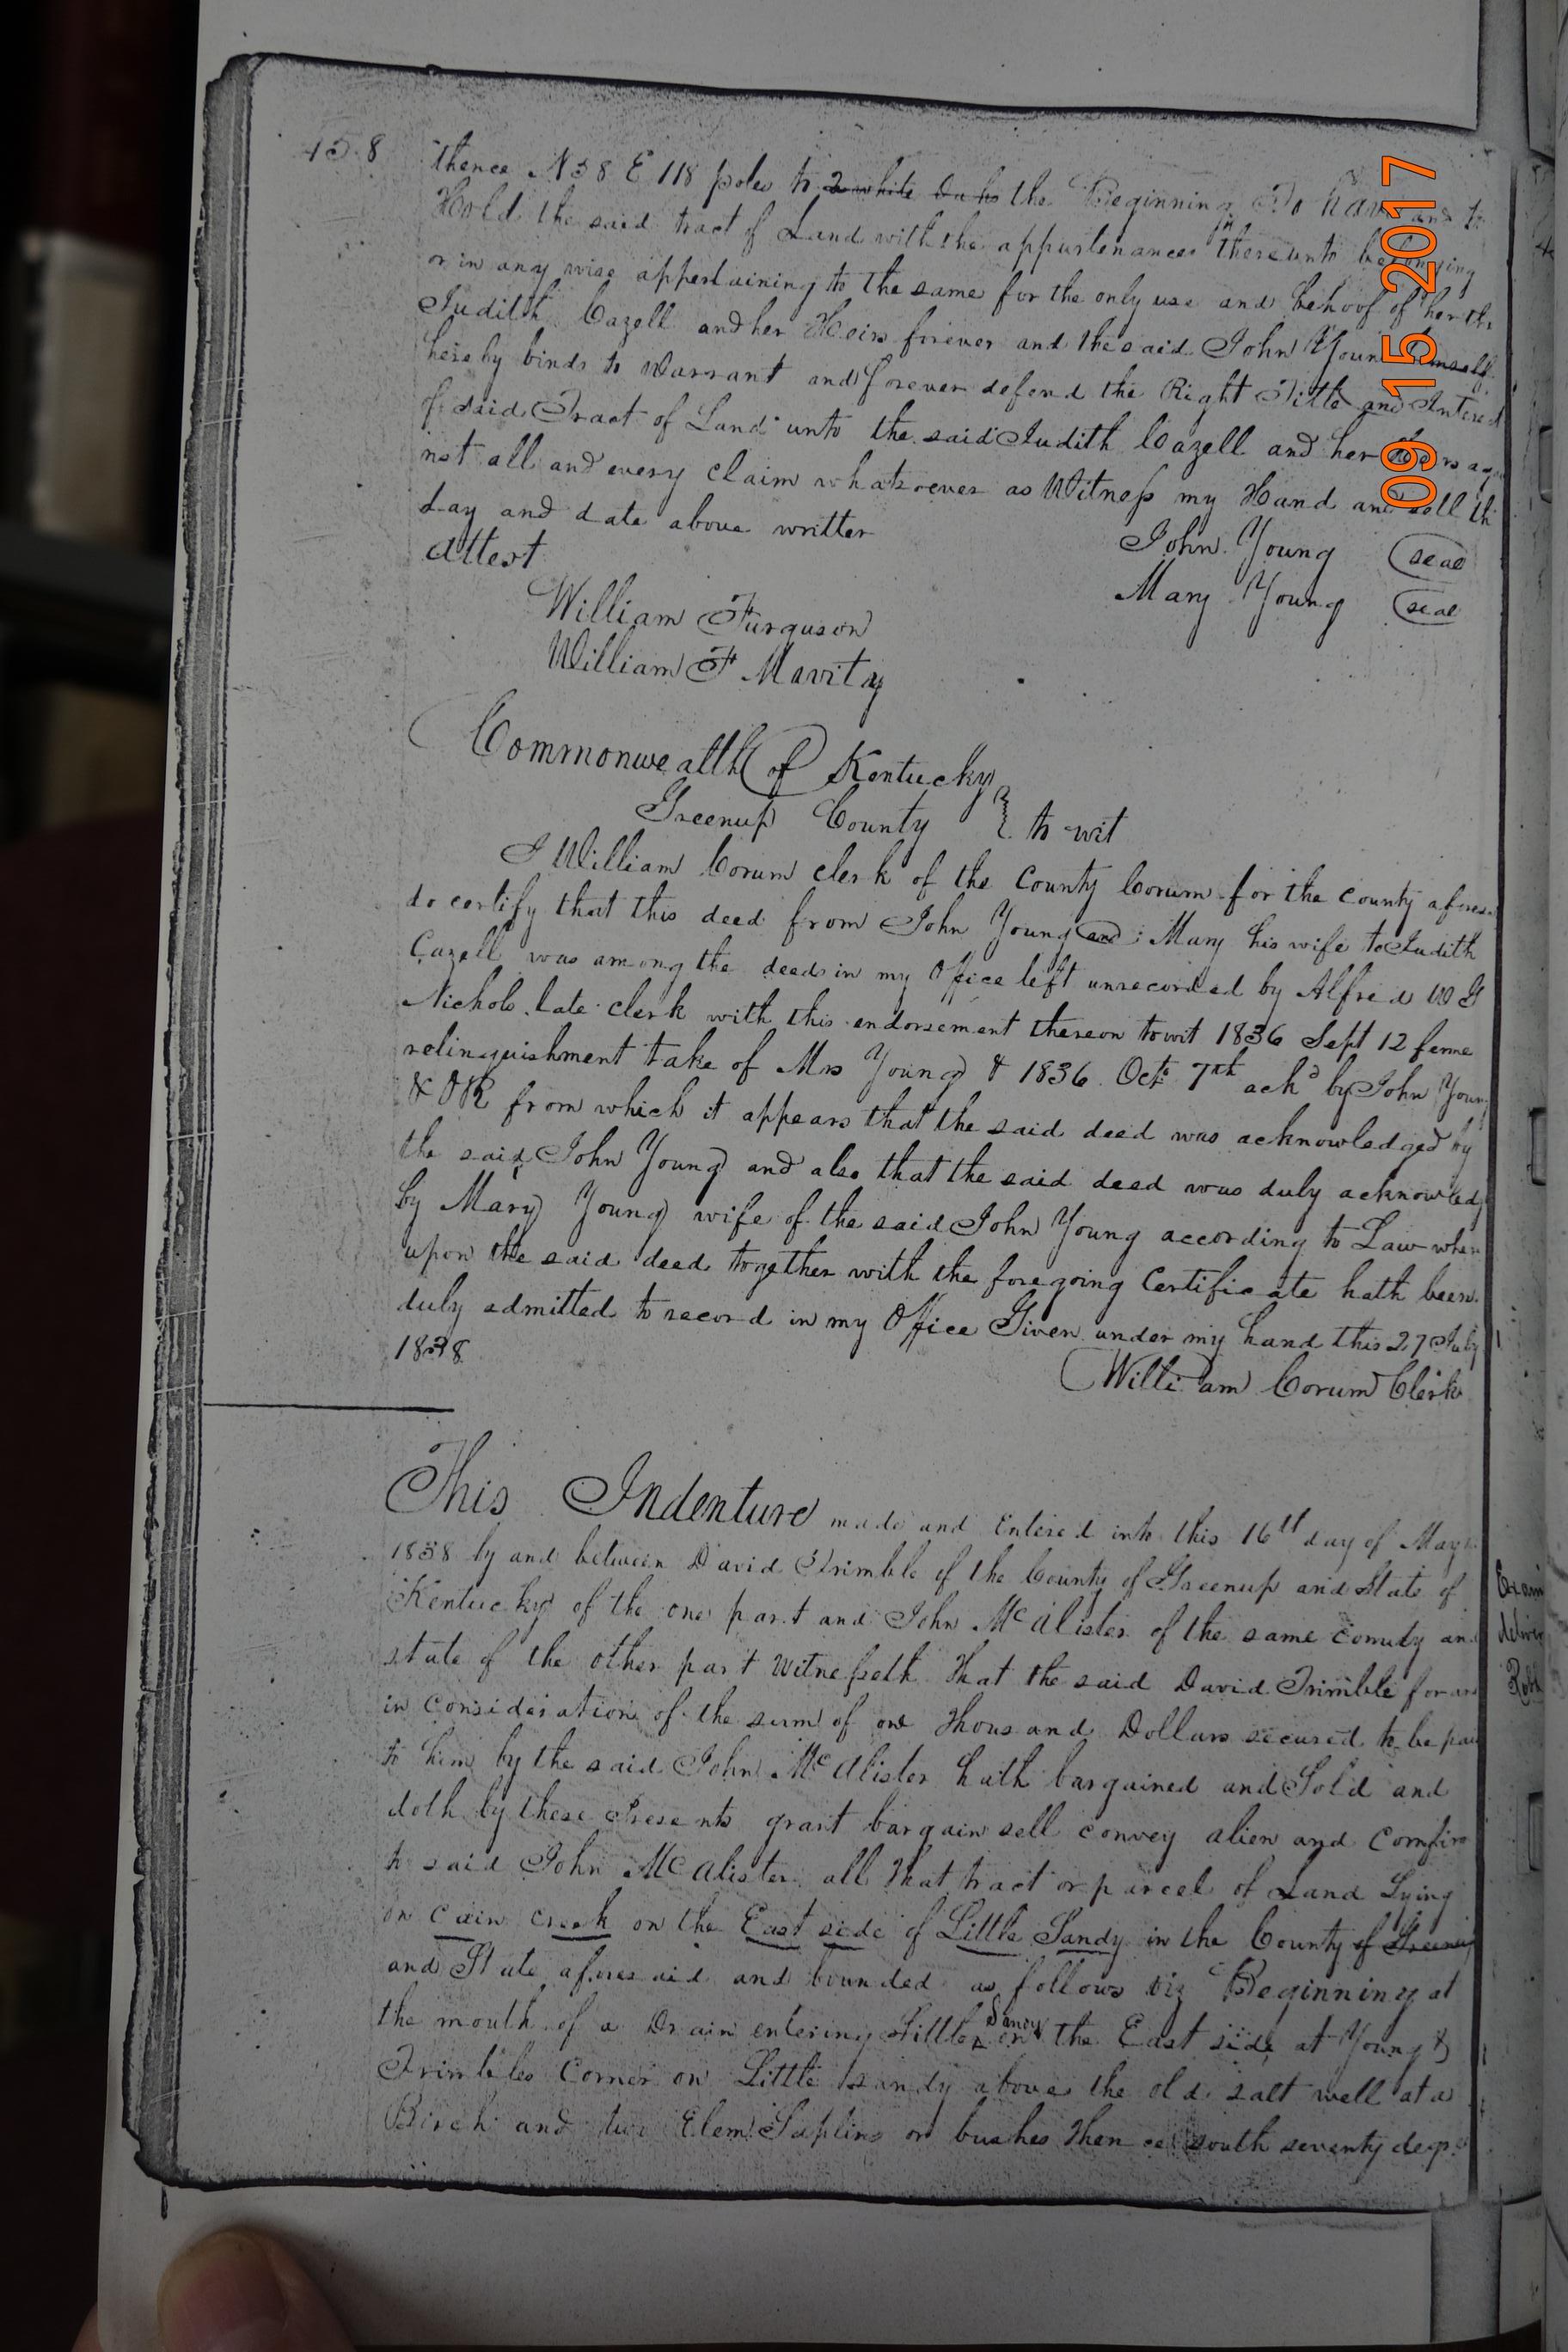 458
thence N 58 E 118 poles to 2 white Oaks the Beginning To have and to
Hold the said tract of Land with the appurtenances thereunto belonging
or in any wise appertaining to the same for the only use and behoof of her the
Judith Cazell and her Heirs forever and the said John Young himself
hereby binds to Warrant and forever defend the Right Title and Interest
of said Tract of Land unto the said Judith Cazell and her Heirs aga
inst all and every claim whatsoever as Witness my Hand and sell th
day and date above written
Attest
John Young (seal
Mary Young (seal
William Furguson
William F Mavity
Commonwealth of Kentucky
Greenup County } to wit
I William Corum clerk of the County Corum for the county afores
do certify that this deed from John Young and Mary his wife to Judith
Cazell was among the deeds in my Office left unrecorded by Alfred W G
Nichols late clerk with this endorsement thereon to wit 1836 Sept 12 feme
relinquishment take of Mrs Young & 1836 Oct 7th ackd by John Young
& OR from which it appears that the said deed was acknowledged by
the said John Young and also that the said deed was duly acknowledg
by Mary Young wife of the said John Young according to Law wher
upon the said deed together with the foregoing Certificate hath been
duly admitted to record in my Office Given under my hand this 27 July
1838
William Corum Clerk
This Indenture made and Entered into this 16th day of May
1838 by and between David Trimble of the County of Greenup and State of
Kentucky of the one part and John McAlister of the same County and
state of the other part Witnesseth That the said David Trimble for and
in consideration of the sum of one Thousand Dollars secured to be paid
to him by the said John McAlister hath bargained and Sold and
doth by these Presents grant bargain sell convey alien and Comfirm
to said John McAlister all that tract or parcel of Land Lying
on Cain Creek on the East side of Little Sandy in the County of Greenup
and State aforesaid and bounded as follows viz Beginning at
the mouth of a Drain entering Little Sandy on the East side at Young &
Trimbles Corner on Little Sandy above the old salt well at a
Birch and two Elem Saplins or bushes thence south seventy degr
09 15 2017